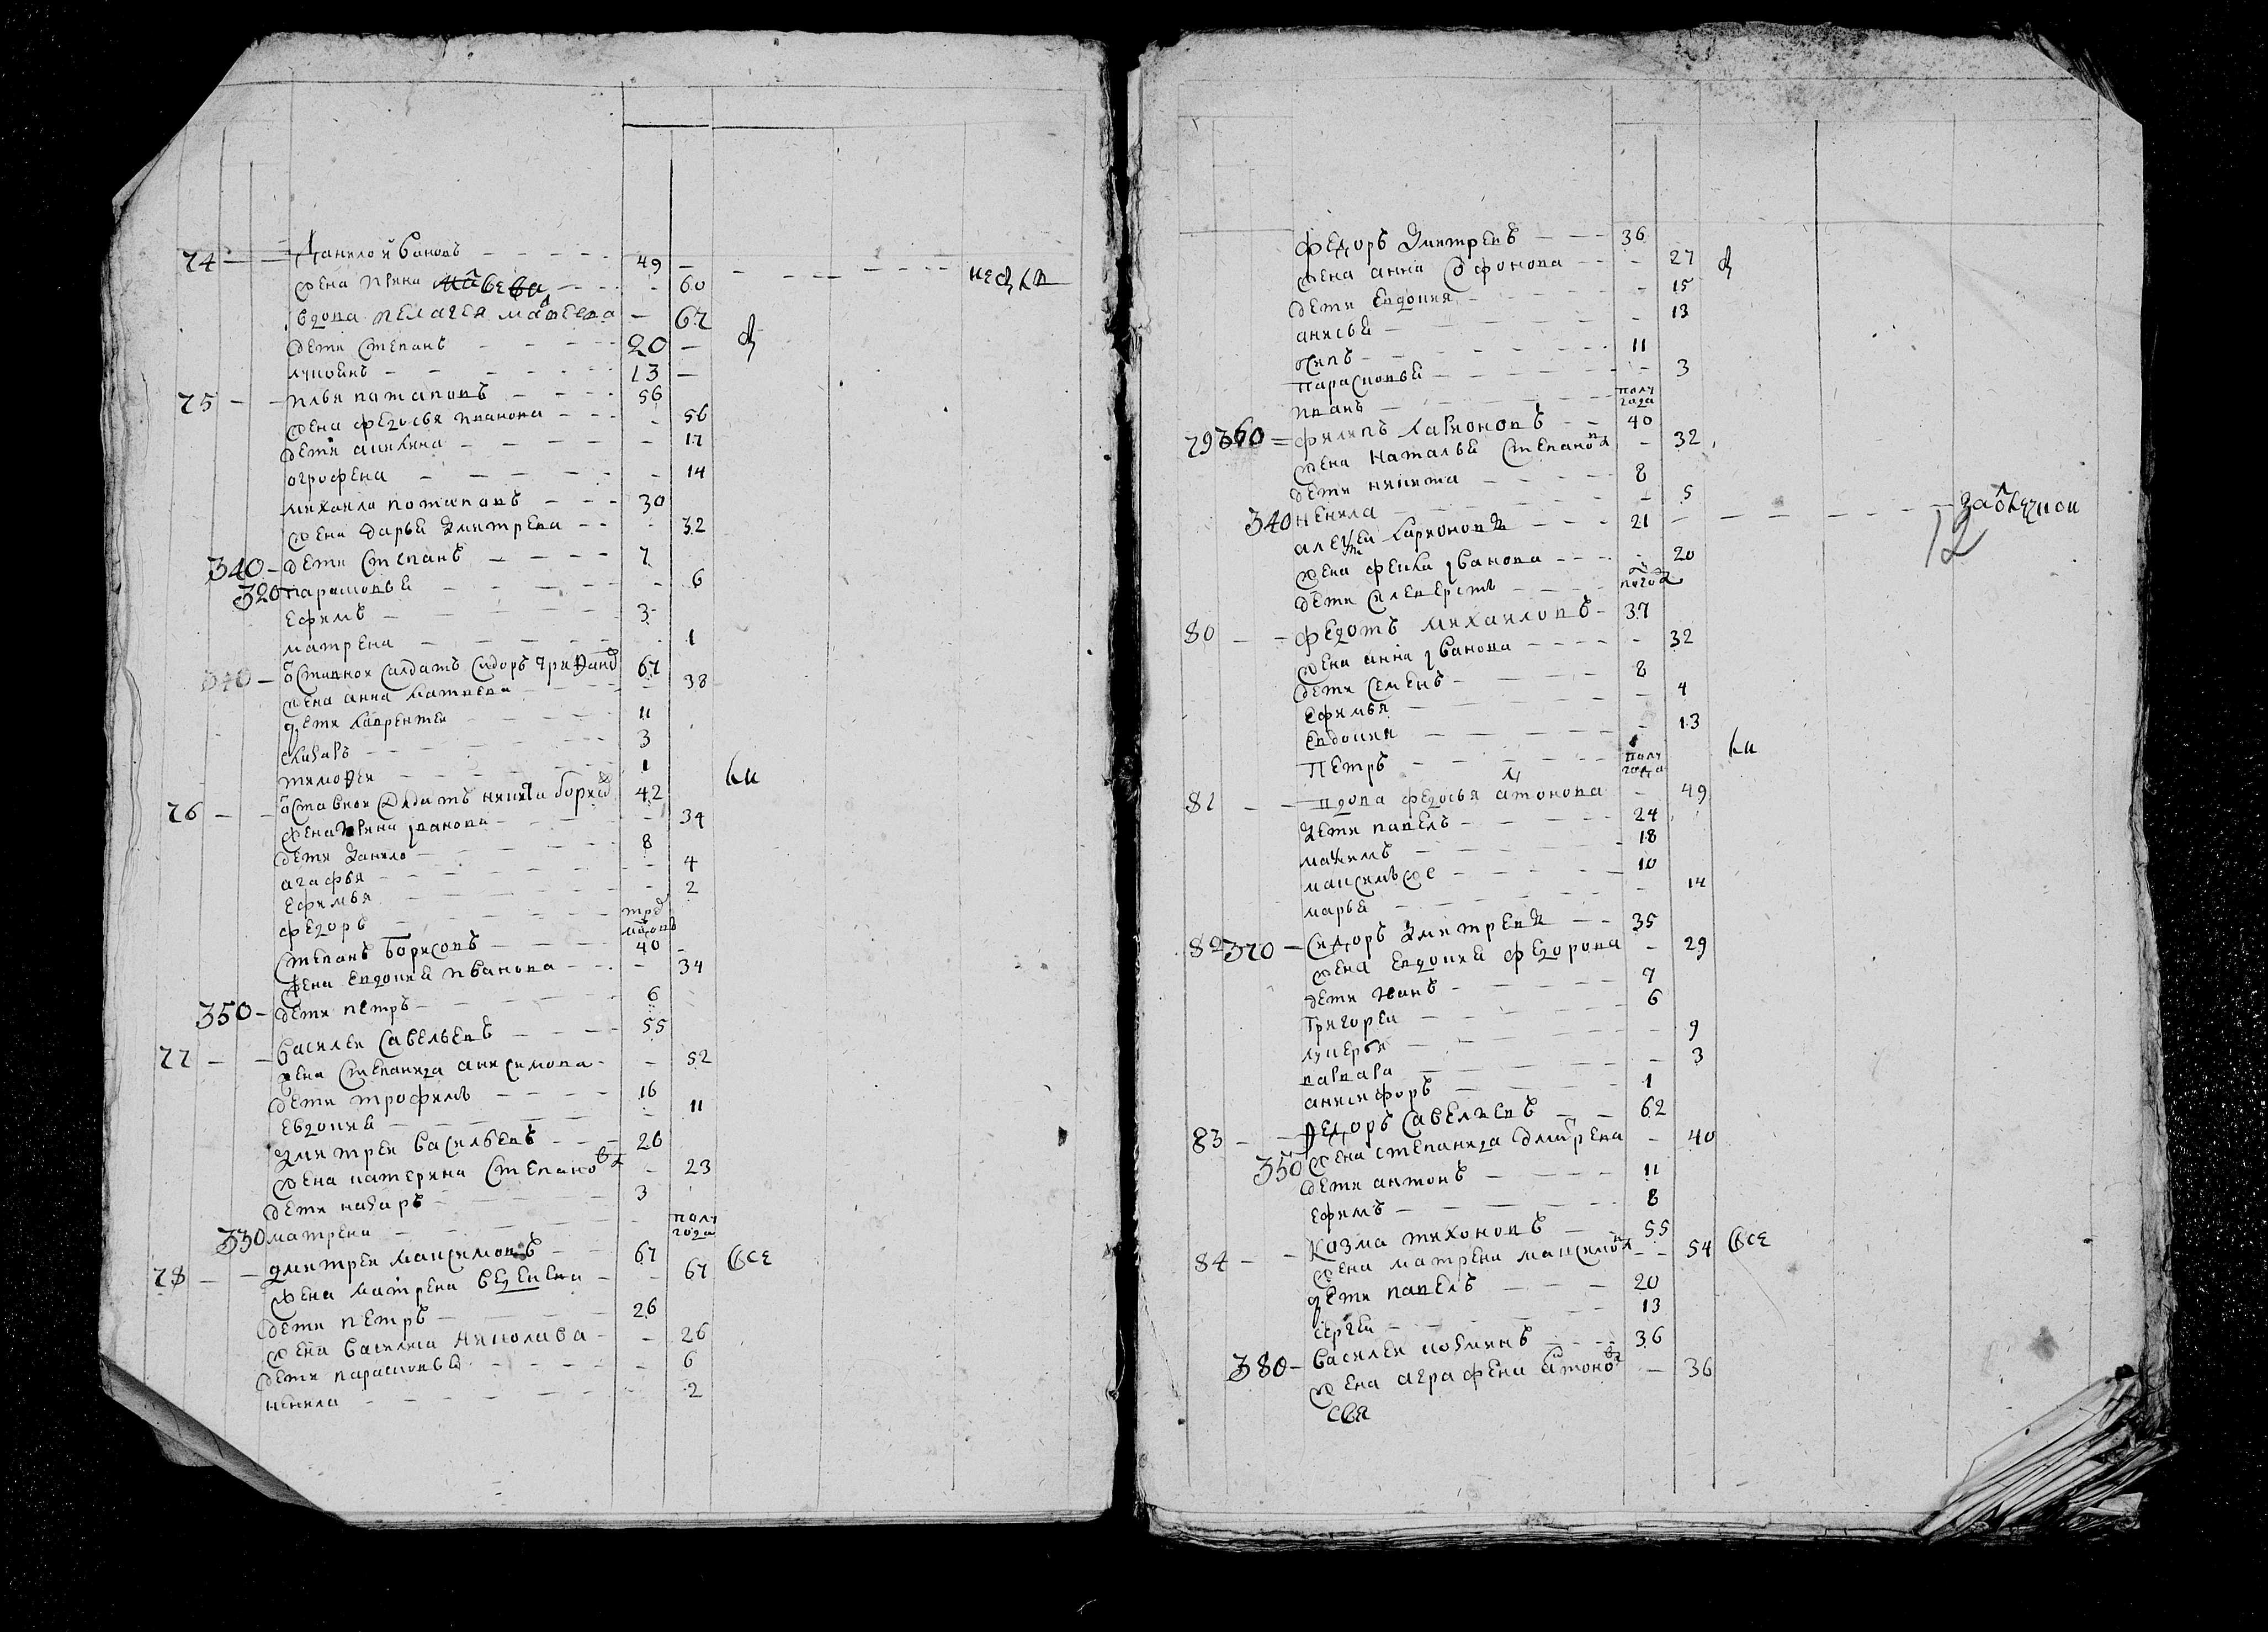 74 — — Данило иванов 49 —
жена ирина 60
вдова пелагея матвева — 67
дети степанъ 20 —
13 —
75 — — илья патаповъ 56
жена федосья иванова - 56
дети акилина — 17
огрофена - 14
михаила потаповъ 30
жена дарья дмитрева - 32
340 — дети степанъ 7
320 парасковья - 6
ефимъ 3
матрена - 1
340 — оставнои салдатъ сидоръ 67
жена анна матвева — 38
дети лаврентеи 11
елизаръ 3
тимофеи 1
ки
76 — — оставнои салдатъ никита борисо 42
жена ирина иванова — 34
дети данило 8
агафья — 4
ефимья - 2
федоръ
степанъ борисовъ 40 -
жена евдокия иванова — 34
350 — дети петръ 6
77 — — василеи савельевъ 55
жена степанида анисимова — 52
дети трофимъ 16
евдокия — 11
дмитреи васильевъ 26
жена катерина степанова — 23
дети назаръ 3
330 матрена — полу года
78 — — дмитреи максимовъ 67
жена матрена — 67 все
дети петръ 26
жена василиса николава — 26
дети парасковья — 6
ненила — 2
федоръ дмитревъ 36
жена анна софонова - 27
дети евдокия - 15
анисья - 13
осипъ 11
парасковья - 3
иванъ полу года
79 360 = филипъ ларионовъ 40
жена наталья степанова — 32
дети никита 8
340 ненила — 5
алексеи ларионовъ 21 —
12
жена фекла иванова - 20
дети силеверстъ
80 — — федотъ михаиловъ 37
жена анна иванова — 32
дети семенъ 8
ефимья — 4
евдокия — 13
петръ полу года
ки
81 — — вдова федосья антонова — 49
дети павелъ 24
максимъ 18
максимъ же 10
марья — 14
82 370 — сидоръ дмитревъ 35
жена евдокия федорова — 29
дети иванъ 7
григореи 6
лукерья — 9
варвара — 3
аникифоръ 1
83 — — федоръ савелиевъ 62
350 жена степанида дмитрева — 40
дети антонъ 11
ефимъ 8
84 — — казма тихоновъ 55
жена матрена максимова — 54 все
дети павелъ 20
сергеи 13
380 — василеи козминъ 36
жена аграфена антонова — 36